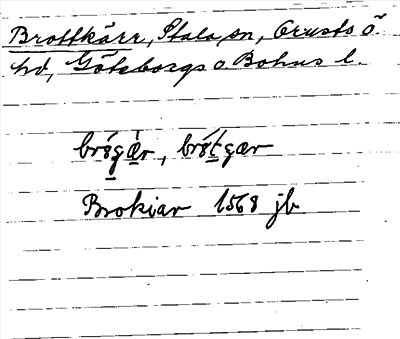 Brottkärr, Stala sn, Orusts ö.
hd, Göteborgs o. Bohus l.
brógæ̀r, brótgær
Brokiar 1568 jb